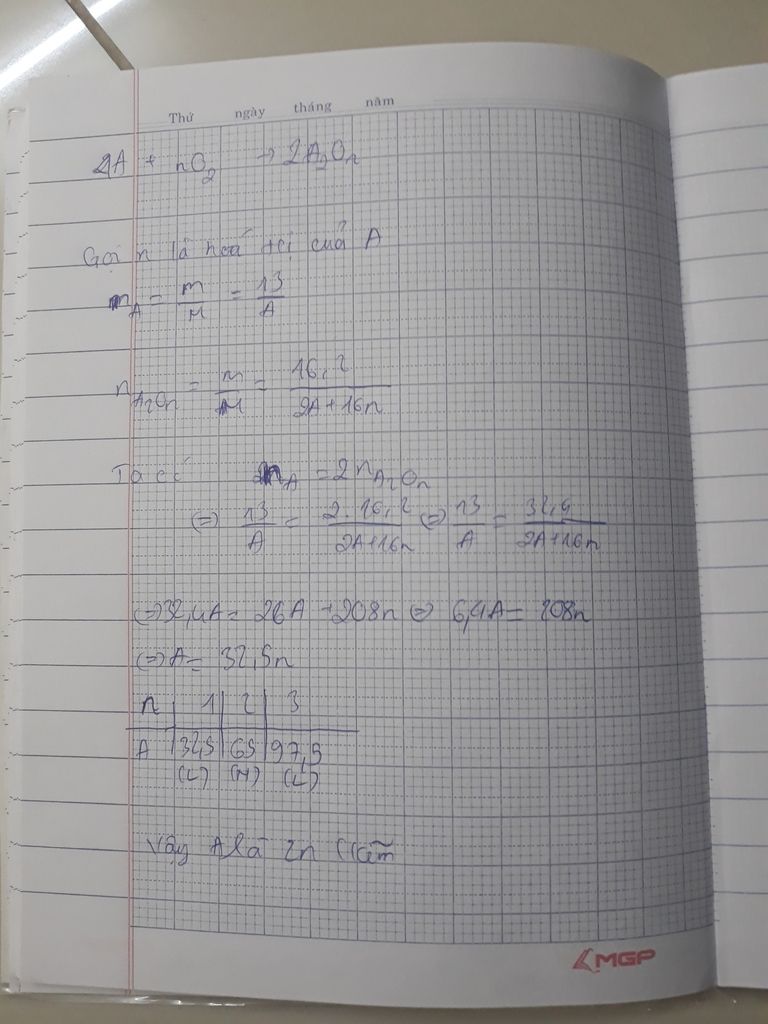 Thứ ngày tháng năm
2A + nO2 → 2A2On
Gọi n là hoá trị của A
nA = m/M = 13/A
nA2On = m/M = 16,2/2A+16n
Ta có nA = 2nA2On
(=) 13/A = 2.16,2/2A+16n (=) 13/A = 32,4/2A+16n
(=) 32,4A = 26A + 208n (=) 6,4A = 208n
(=) A = 32,5n
n | 1 | 2 | 3
A | 32,5 | 65 | 97,5
(L) (N) (L)
Vậy A là Zn (kẽm
MGP